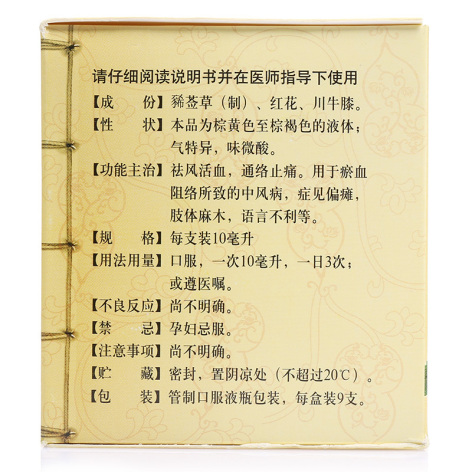 请仔细阅读说明书并在医师指导下使用
【成　份】豨莶草（制）、红花、川牛膝。
【性　状】本品为棕黄色至棕褐色的液体；
气特异，味微酸。
【功能主治】祛风活血，通络止痛。用于瘀血
阻络所致的中风病，症见偏瘫，
肢体麻木，语言不利等。
【规　格】每支装10毫升
【用法用量】口服，一次10毫升，一日3次；
或遵医嘱。
【不良反应】尚不明确。
【禁　忌】孕妇忌服。
【注意事项】尚不明确。
【贮　藏】密封，置阴凉处（不超过20℃）。
【包　装】管制口服液瓶包装，每盒装9支。